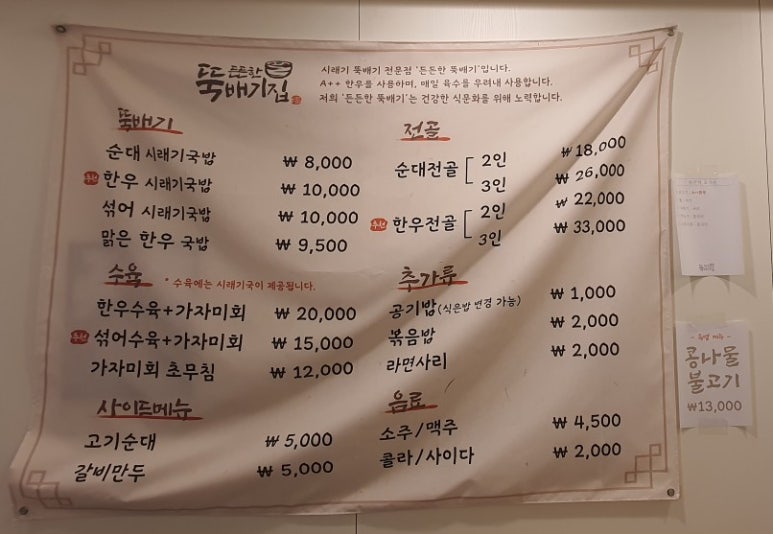 든든한
뚝배기집
시래기 뚝배기 전문점 '든든한 뚝배기'입니다.
A++ 한우를 사용하며, 매일 육수를 우려내 사용합니다.
저희 '든든한 뚝배기'는 건강한 식문화를 위해 노력합니다.
뚝배기
순대 시래기국밥 ₩ 8,000
추천 한우 시래기국밥 ₩ 10,000
섞어 시래기국밥 ₩ 10,000
맑은 한우 국밥 ₩ 9,500
전골
순대전골 2인 ₩ 18,000
3인 ₩ 26,000
추천 한우전골 2인 ₩ 22,000
3인 ₩ 33,000
수육 * 수육에는 시래기국이 제공됩니다.
한우수육+가자미회 ₩ 20,000
추천 섞어수육+가자미회 ₩ 15,000
가자미회 초무침 ₩ 12,000
추가류
공기밥(식은밥 변경 가능) ₩ 1,000
볶음밥 ₩ 2,000
라면사리 ₩ 2,000
사이드메뉴
고기순대 ₩ 5,000
갈비만두 ₩ 5,000
음료
소주/맥주 ₩ 4,500
콜라/사이다 ₩ 2,000
콩나물
불고기
₩13,000